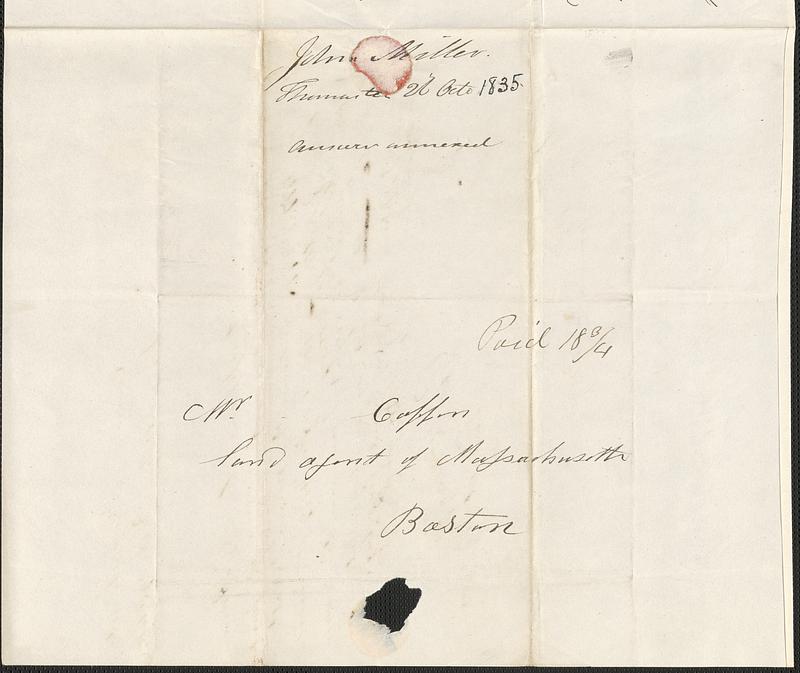 John Miller.
Thomaston 26 Octo 1835.
answer annexed
Paid 18 3/4
Mr. Coffin
land agent of Massachusetts
Boston